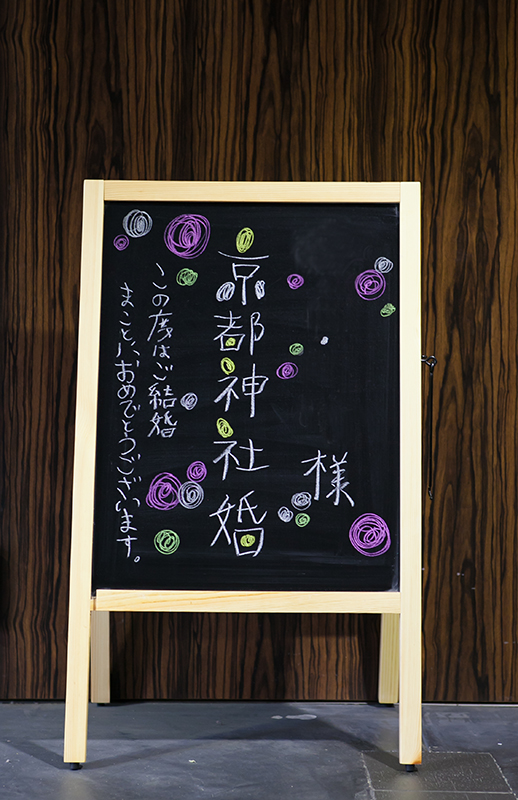 様
京都神社婚
この度はご結婚
まことにおめでとうございます。